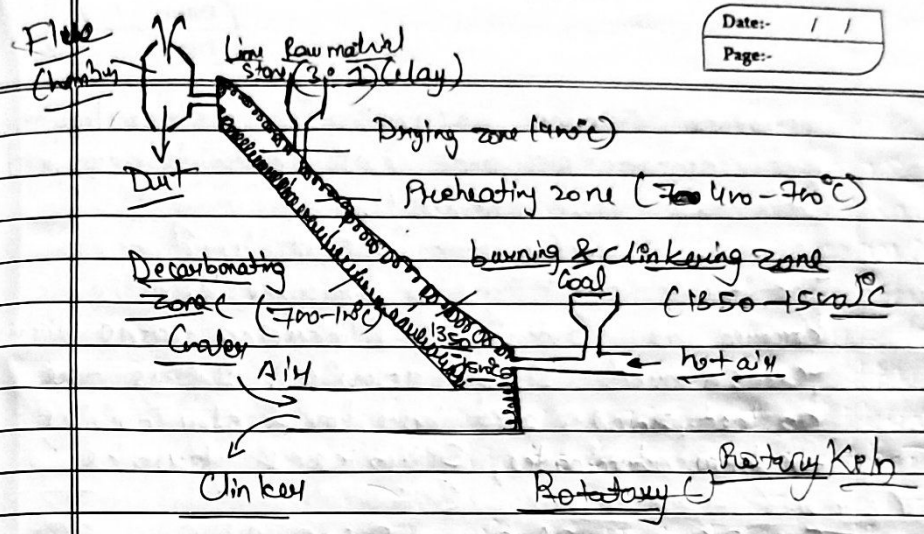 Date:- / /
Page:-
Flue
Chamber
Lime Raw matrial
Stone (3:1) (Clay)
Drying zone (400°C)
Dust
Preheating zone (400-700°C)
Decarbonating
zone (
(700-
burning & Clinkering zone
Coal
(1350-1500)°C
1350
1500°C
Cooler
Air
hot air
Clinker
Rotary Keln